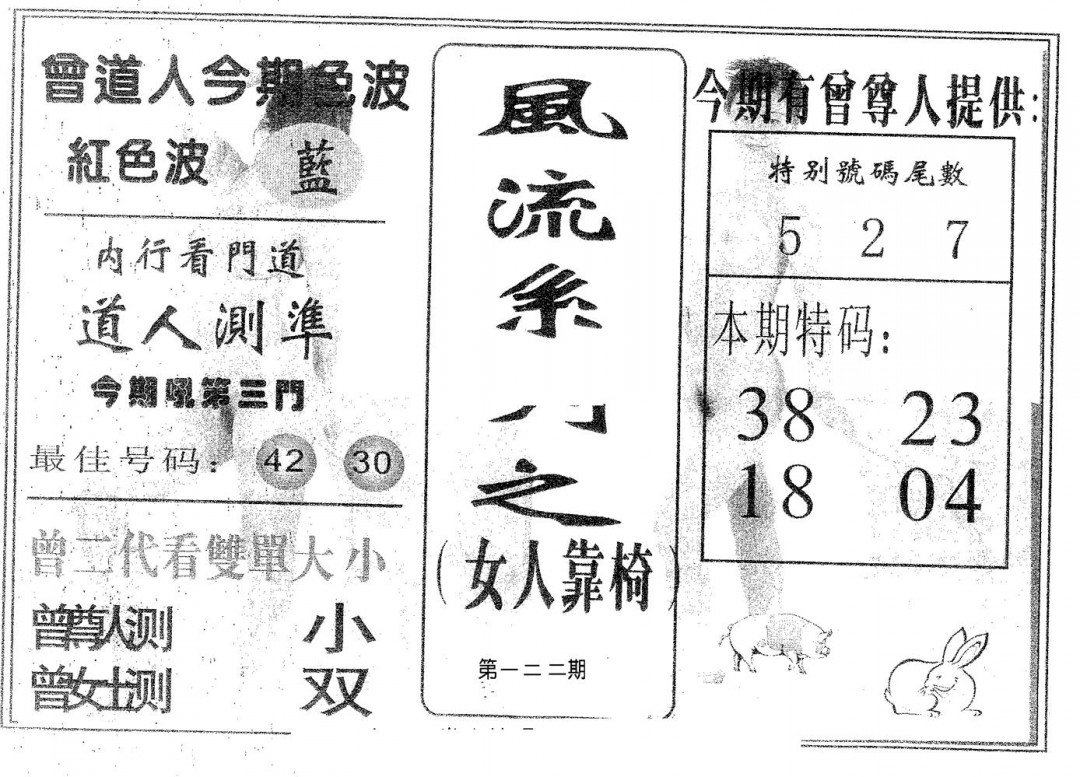 曾道人今期色波
紅色波 藍
内行看門道
道人測準
今期吼第三門
最佳号码：42 30
曾二代看雙單大小
曾尊人测 小
曾女士测 双
風
流
系
之
（女人靠椅）
第一二二期
今期有曾尊人提供：
特别號碼尾數
5 2 7
本期特码：
38 23
18 04